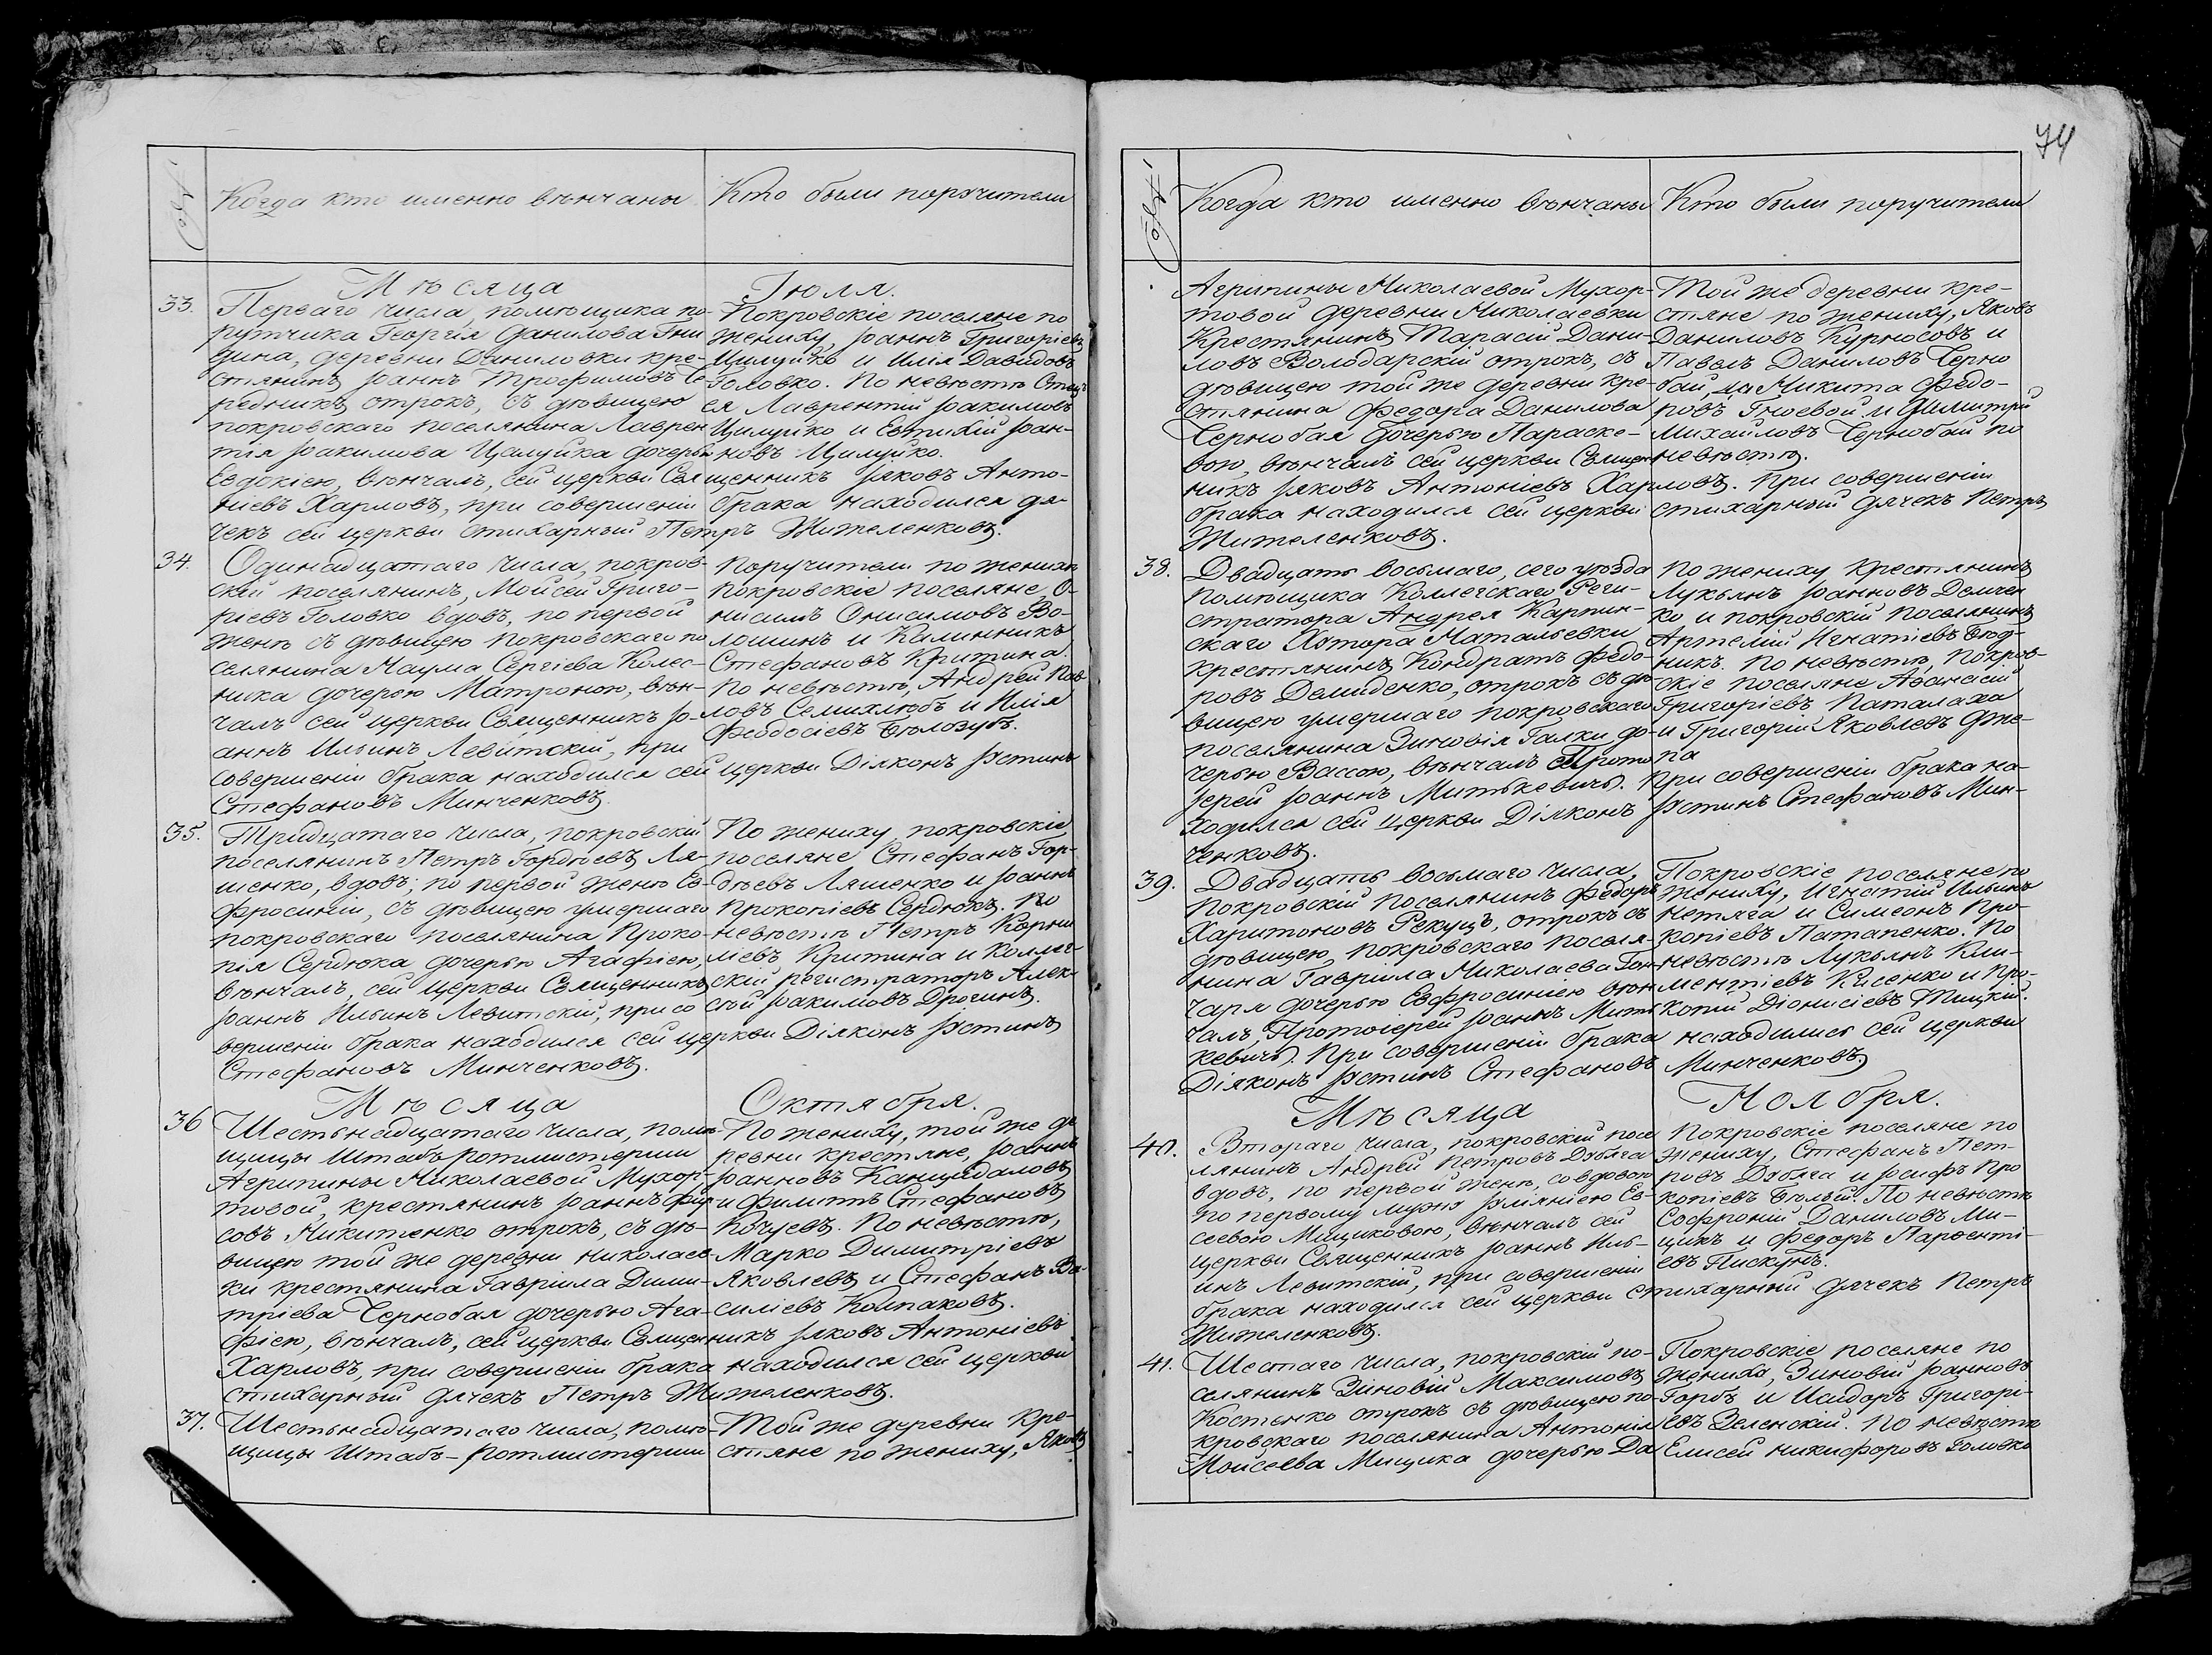 Когда кто именно вѣнчаны
Кто были поручители
Мѣсяца
Іюля.
33.
Перваго числа, помѣщика по-
рутчика Георгія Данилова Гни
дина, деревни Даниловки кре-
стянинъ Іоаннъ Трофимовъ Се
редникъ отрокъ, съ дѣвицею
покровскаго поселянина Лаврен
тія Іоакимова Цилуйка дочерью
Евдокіею, вѣнчалъ, сей церкви Священникъ Іяковъ Анто-
ніевъ Харловъ, при совершеніи брака находился дя-
чекъ сей церкви стихарный Петръ Жителенковъ.
Покровскіе поселяне по
жениху, Іоаннъ Григоріевъ
Цилуйко и Илія Давидовъ
Головко. По невѣстѣ Отецъ
ея Лаврентій Іоакимовъ
Цилуйко и Евтихій Іоан-
новъ Цилуйко.
34.
Одинадцатаго числа, покров-
скій поселянинъ, Мойсей Григо-
ріевъ Головко вдовъ, по первой
женѣ съ дѣвицею покровскаго по
селянина Наума Сергіева Колес-
ника дочерею Матроною, вѣн-
чалъ сей церкви Священникъ Іо-
аннъ Ильинъ Левитскій, при
совершеніи брака находился сей церкви Діяконъ Іустинъ
Стефановъ Минченковъ.
Поручители по жениху
покровскіе поселяне, О-
нисимъ Онисимовъ Во-
лошинъ и Калинникъ
Стефановъ Критина.
По невѣстѣ, Андрей Пав-
ловъ Семихлюбъ и Илія
Феодосіевъ Бѣлозубъ.
35.
Тридцатаго числа, покровскій
поселянинъ Петръ Гордѣевъ Ля-
шенко, вдовъ; по первой женѣ Ев-
фросиніи, съ дѣвицею умершаго
покровскаго поселянина Проко-
пія Сердюка дочерью Агафіею,
вѣнчалъ, сей церкви Священникъ
Іоаннъ Ильинъ Левитскій, при со
вершеніи брака находился сей церкви Діяконъ Іустинъ
Стефановъ Минченковъ.
По жениху покровскіе
поселяне Стефанъ Гор-
дѣевъ Ляшенко и Іоаннъ
Прокопіевъ Сердюкъ. По
невѣстѣ Петръ Корни
ліевъ Критина и Коллег-
скій регистраторъ Алек-
сѣй Іоакимовъ Дрогинъ.
Мѣсяца
Октября.
36
Шестьнадцатаго числа, помѣ-
щицы Штабъ ротмистерши
Агрипины Николаевой Мухор-
товой, крестянинъ Іоаннъ Фир-
совъ Никитенко отрокъ, съ дѣ-
вицею той же деревни Николаев-
ки крестянина Гавріила Дими-
тріева Чернобая дочерью Ага-
фіею, вѣнчалъ, сей церкви Священникъ Іяковъ Антоніевъ
Харловъ, при совершеніи брака находился сей церкви
стихарный дячекъ Петръ Жителенковъ.
По жениху, той же де
ревни крестяне, Іоаннъ
Іоанновъ Канцидаловъ
и Филиппъ Стефановъ
Почуевъ. По невѣстѣ,
Марко Димитріевъ
Яковлевъ и Стефанъ Ва-
силіевъ Колпаковъ.
37.
Шестьнадцатаго числа, помѣ-
щицы Штабъ-ротмистерши
Той же деревни кре-
стяне по жениху, Яковъ
74
Когда кто именно вѣнчаны
Кто были поручители
Агрипины Николаевой Мухор-
товой деревни Николаевки
Крестянинъ Тарасій Дани-
ловъ Володарскій отрокъ, съ
дѣвицею той же деревни кре-
стянина Федора Данилова
Чернобая дочерью Параске-
вою, вѣнчалъ сей церкви Священ
никъ Іяковъ Антоніевъ Харловъ. При совершеніи
брака находился сей церкви стихарный дячекъ Петръ
Жителенковъ.
Той же деревни кре-
стяне по жениху, Яковъ
Даниловъ Курносовъ и
Павелъ Даниловъ Черно
бай, да Никита Федо-
ровъ Гноевой и Димитрій
Михайловъ Чернобай по
невѣстѣ.
38.
Двадцать восьмаго, сего уѣзда
помѣщика Коллегскаго Реги-
стратора Андрея Карпин-
скаго Хутора Натальевки
крестянинъ Кондратъ Федо-
ровъ Демиденко, отрокъ съ дѣ-
вицею умершаго покровскаго
поселянина Зиновія Галки до-
черью Вассою, вѣнчалъ Прото
іерей Іоаннъ Митькевичъ. При совершеніи брака на-
ходился сей церкви Діяконъ Іустинъ Стефановъ Мин-
ченковъ.
По жениху крестянинъ
Лукьянъ Іоанновъ Демчен
ко и покровскій поселянинъ
Артемій Игнатіевъ Бѣд-
никъ. По невѣстѣ, Покров-
скіе поселяне Афанасій
Григоріевъ Паталаха
и Григорій Яковлевъ Дже-
па
39.
Двадцать восьмаго числа,
покровскій поселянинъ Федоръ
Харитоновъ Рекуцъ, отрокъ съ
дѣвицею, покровскаго поселя-
нина Гавріила Николаева Гон-
чаря дочерью Евфросиніею вѣн
чалъ, Протоіерей Іоаннъ Мить
кевичъ. При совершеніи брака находились сей церкви
Діяконъ Іустинъ Стефановъ Минченковъ.
Покровскіе поселяне по
жениху, Игнатій Ильинъ
Нетяга и Симеонъ Про-
копіевъ Патапенко. По
невѣстѣ Лукьянъ Кли-
ментіевъ Кисенко и Про-
копій Діонисіевъ Тицкій.
Мѣсяца
Ноября.
40.
Втораго числа, покровскій посе
лянинъ Андрей Петровъ Дубяга
вдовъ, по первой женѣ, со вдовою
по первому мужу Іуліяніею Ев-
сеевою Мициковою, вѣнчалъ сей
церкви Священникъ Іоаннъ Иль-
инъ Левитскій, при совершеніи
брака находился сей церкви стихарный дячекъ Петръ
Жителенковъ.
Покровскіе поселяне по
жениху, Стефанъ Пет-
ровъ Дубяга и Іосифъ Про
копіевъ Бѣлый. По невѣстѣ
Софроній Даниловъ Ми-
цикъ и Федоръ Парфенті-
евъ Пискунъ.
41.
Шестаго числа, покровскій по-
селянинъ Зиновій Максимовъ
Костенко отрокъ съ дѣвицею по-
кровскаго поселянина Антонія
Мойсеева Мицика дочерью Да
Покровскіе поселяне по
жениха, Зиновій Іоанновъ
Горбъ и Исидоръ Григорі-
евъ Зеленскій. По невѣстѣ
Елисей Никифоровъ Головко